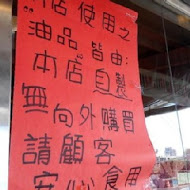 店 使用之
油品 皆由:
本店自製
無向外購買
請顧客
安心食用